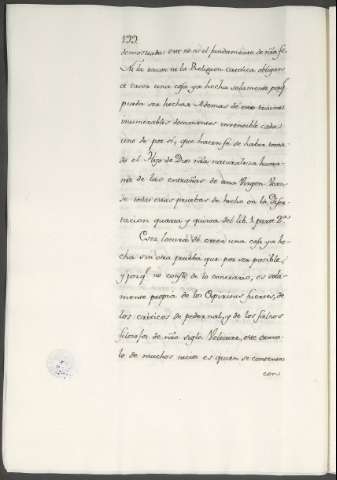 122.
demostrado este no es el fundamento de nra fe.
Ni la razon ni la Religion catolica obligan
à creer una cosa ya hecha solamente porq.
pueda ser hecha. Ademas de esto tenemos
innumerables documentos invencible cada
uno de por si, que hacen fe de haber toma-
do el Hijo de Dios nra naturaleza huma-
na de las entrañas de una Virgen. Vean-
se todas estas pruebas de hecho en la Diser-
tacion quarta y quinta del lib. 1. parte 2.ª
Esta locura de creer una cosa ya he-
cha sin otra prueba que por ser posible,
y porq. no conste de lo contrario, es sola-
mente propia de los Espiritus fuertes, de
los criticos de pedernal, y de los falsos
filosofos de nro siglo. Voltaire, este
lo de muchos necios es quien se contenta
con